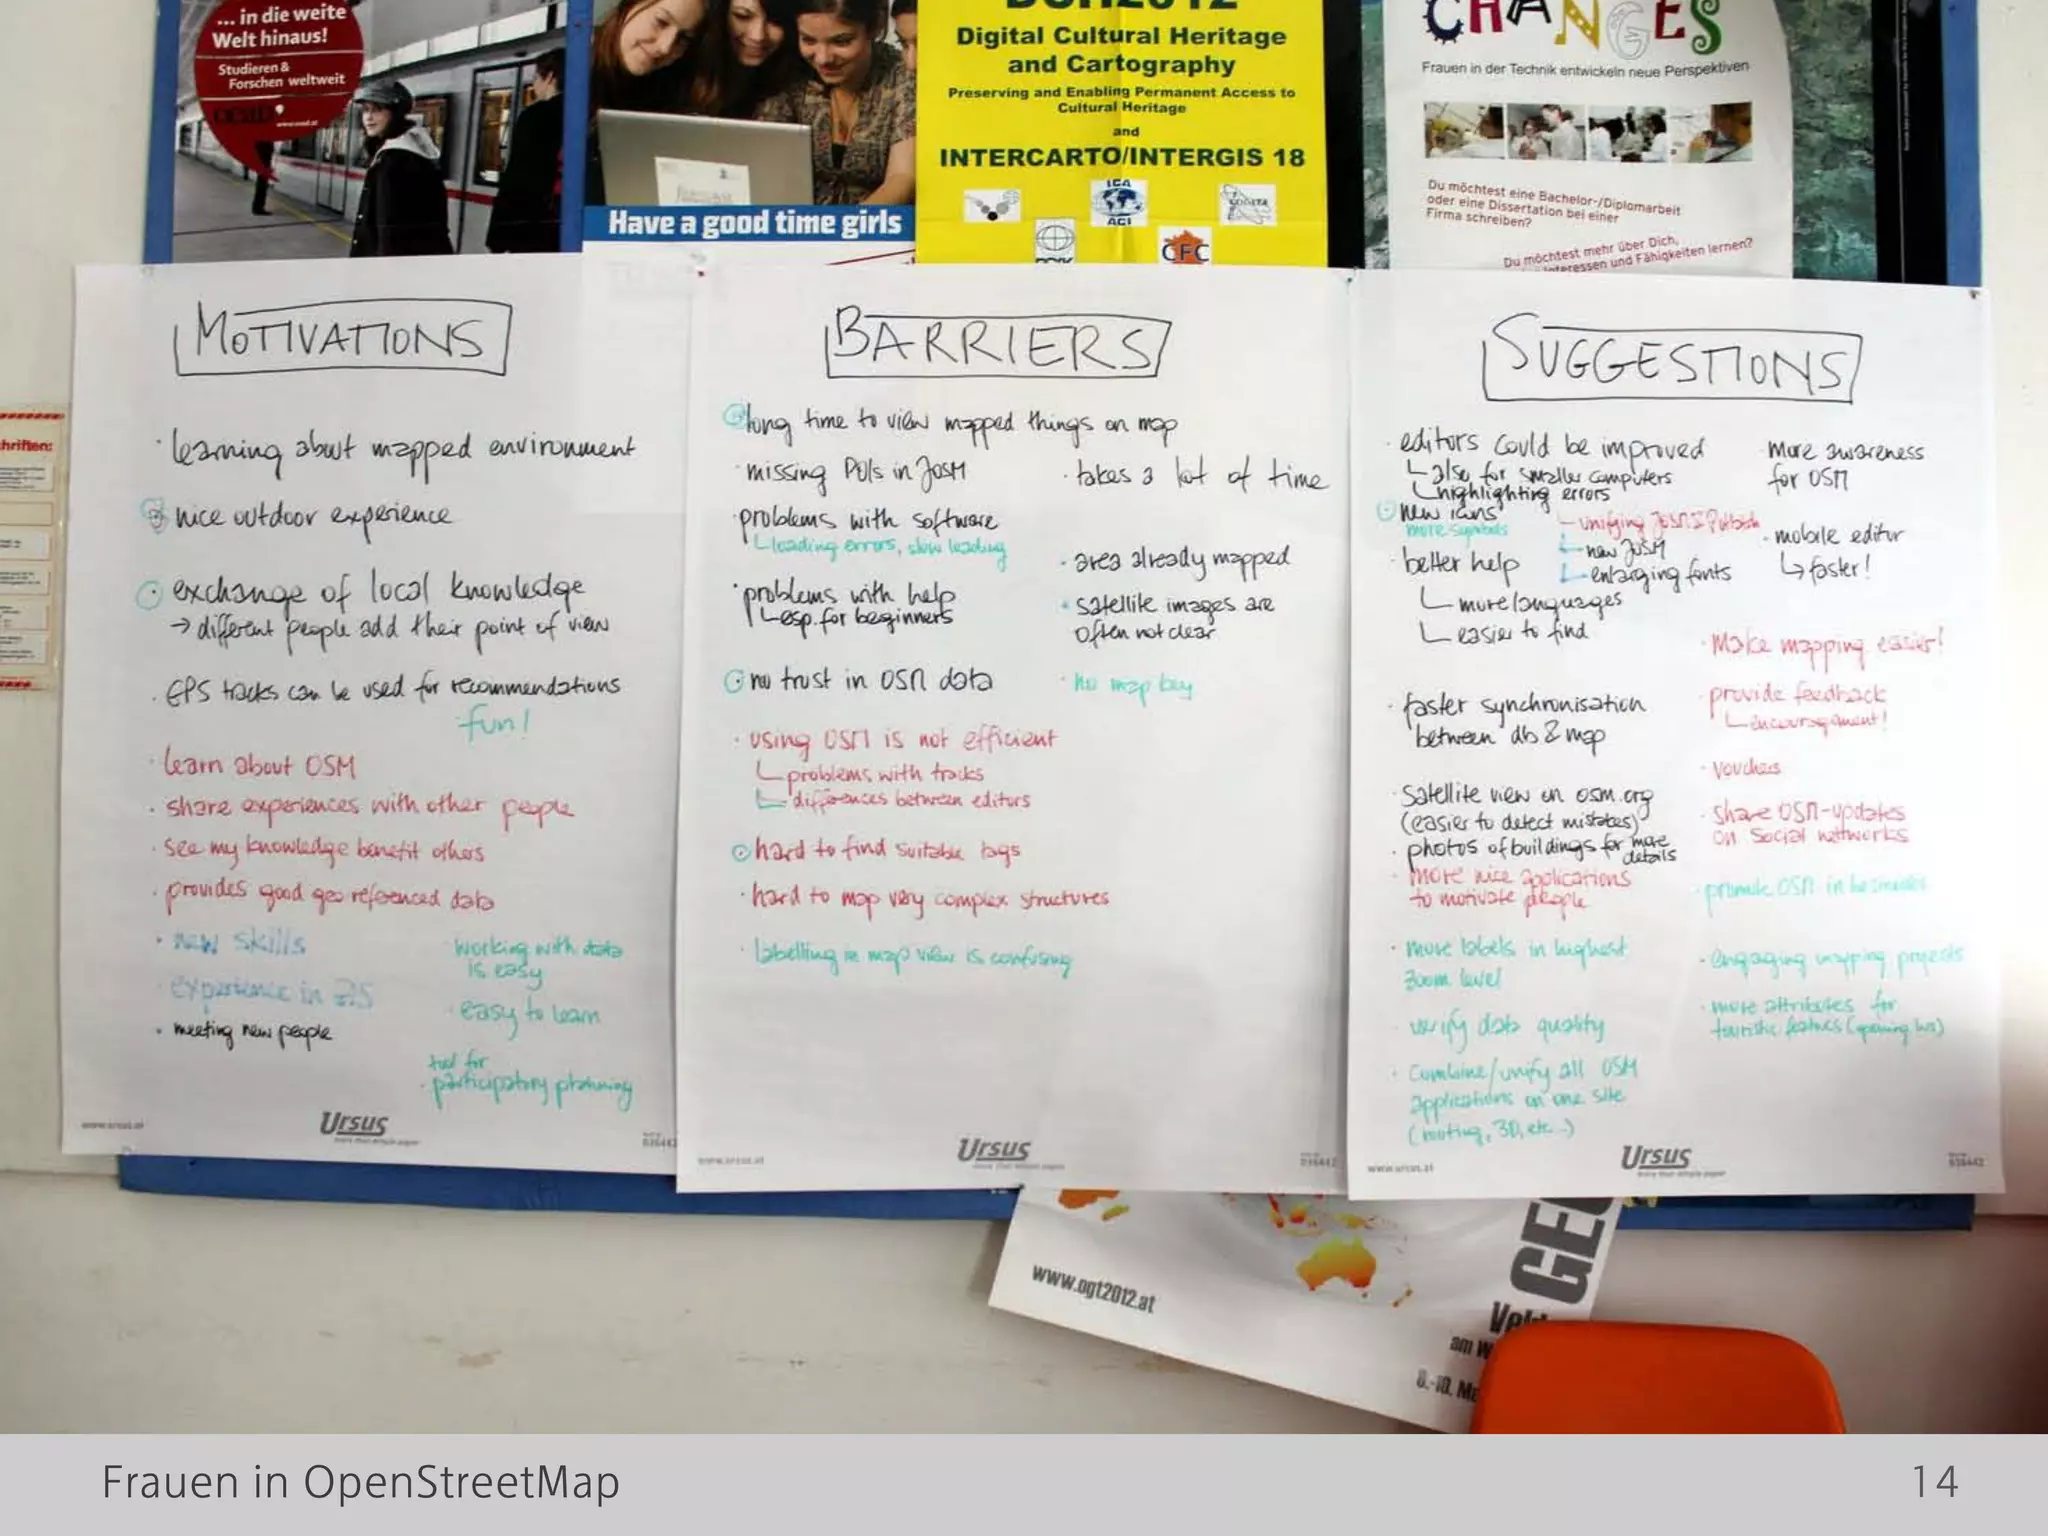 ... in die weite
Welt hinaus!
Studieren &
Forschen weltweit
Have a good time girls
Digital Cultural Heritage
and Cartography
Preserving and Enabling Permanent Access to
Cultural Heritage
and
INTERCARTO/INTERGIS 18
ICA
ACI
CFC
CHANGES
Frauen in der Technik entwickeln neue Perspektiven
Du möchtest eine Bachelor-/Diplomarbeit
oder eine Dissertation bei einer
Firma schreiben?
Du möchtest mehr über Dich,
Interessen und Fähigkeiten lernen?
MOTIVATIONS
· learning about mapped environment
· nice outdoor experience
· exchange of local knowledge
→ different people add their point of view
· GPS tracks can be used for recommendations
· fun!
· learn about OSM
· share experiences with other people
· see my knowledge benefit others
· provides good geo referenced data
· new skills
· experience in GIS
· meeting new people
· working with data
is easy
· easy to learn
tool for
· participatory planning
www.ursus.at
Ursus
BARRIERS
· long time to view mapped things on map
· missing POIs in JOSM
· problems with software
loading errors, slow loading
· problems with help
esp. for beginners
· no trust in OSM data
· using OSM is not efficient
problems with tracks
differences between editors
· hard to find suitable tags
· hard to map very complex structures
· labelling in map view is confusing
· takes a lot of time
· area already mapped
· satellite images are
often not clear
· no map key
www.ursus.at
Ursus
SUGGESTIONS
· editors could be improved
also for smaller computers
highlighting errors
· new icons
more symbols
unifying JOSM & Potlatch
new JOSM
enlarging fonts
· better help
more languages
easier to find
· faster synchronisation
between db & map
· Satellite view on osm.org
(easier to detect mistakes)
· photos of buildings for more
details
· more nice applications
to motivate people
· more labels in highest
zoom level
· verify data quality
· Combine/unify all OSM
applications on one site
(routing, 3D, etc..)
· more awareness
for OSM
· mobile editor
↳ faster!
· Make mapping easier!
· provide feedback
encouragement!
· vouchers
· share OSM-updates
on social networks
· promote OSM in
· engaging mapping projects
· more attributes for
touristic features (opening hrs)
www.ursus.at
Ursus
www.ogt2012.at
GE
am W
8.-10. Ma
Frauen in OpenStreetMap
14